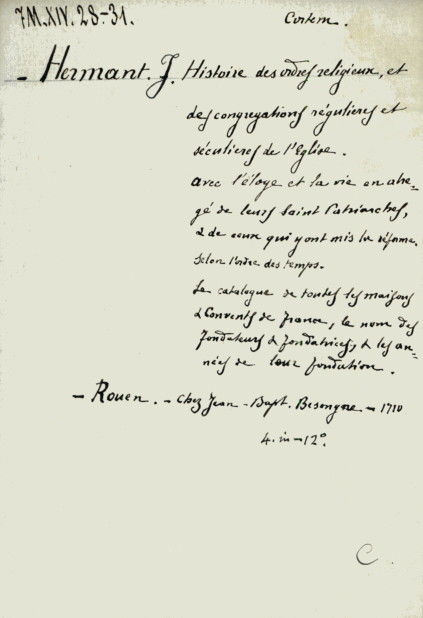 7M.XIV.28-31.
Cortem.
- Hermant. J. Histoire des ordres religieux, et
des congregations régulieres et
séculieres de l'Eglise.
avec l'éloge et la vie en abre-
gé de leurs Saint Patriarches,
& de ceux qui y ont mis la réforme.
selon l'ordre des temps.
Le catalogue de toutes les maisons
& Convents de France, le nom des
fondateurs & fondatrices, & les an-
nées de leur fondation.
- Rouen. - Chez Jean-Bapt. Besongne - 1710
4. in-12°.
C